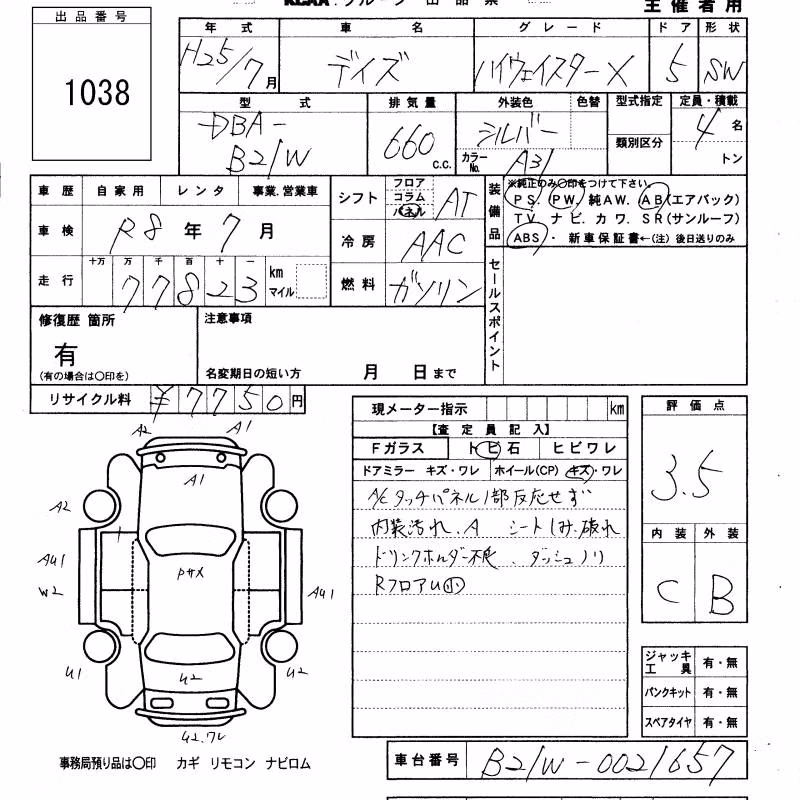 出品番号
1038
主催者用
年式 車名 グレード ドア 形状
H25/7月 デイズ ハイウェイスターX 5 SW
型式 排気量 外装色 色替 型式指定 定員・積載
DBA-
B21W 660 c.c. シルバー 類別区分 4名
カラーNo. A31 トン
車歴 自家用 レンタ 事業.営業車
シフト フロア コラム パネル AT
車検 R8年7月
冷房 AAC
走行 十万 万 千 百 十 一
77823 km マイル
燃料 ガソリン
装備品
※純正のみ〇印をつけて下さい。
PS. PW. 純AW. AB(エアバック)
TV. ナビ. カワ. SR(サンルーフ)
ABS・新車保証書←(注)後日送りのみ
セールスポイント
修復歴 箇所
有
(有の場合は〇印を)
注意事項
名変期日の短い方 月 日まで
リサイクル料 ¥7750円
現メーター指示 km
【査定員記入】
Fガラス トビ石 ヒビワレ
ドアミラー キズ・ワレ ホイール(CP) キズ・ワレ
A/Cタッチパネル1部反応せず
内装汚れ.A シートしみ.破れ
ドリンクホルダー不良、ダッシュノリ
RフロアU小
評価点
3.5
内装 外装
C B
ジャッキ工具 有・無
パンクキット 有・無
スペアタイヤ 有・無
A2 A1
A1
A2 A2
AU1
W2 PサX AU1
U1 U2 U2
U2.ワレ
事務局預り品は〇印 カギ リモコン ナビロム
車台番号 B21W-0021657